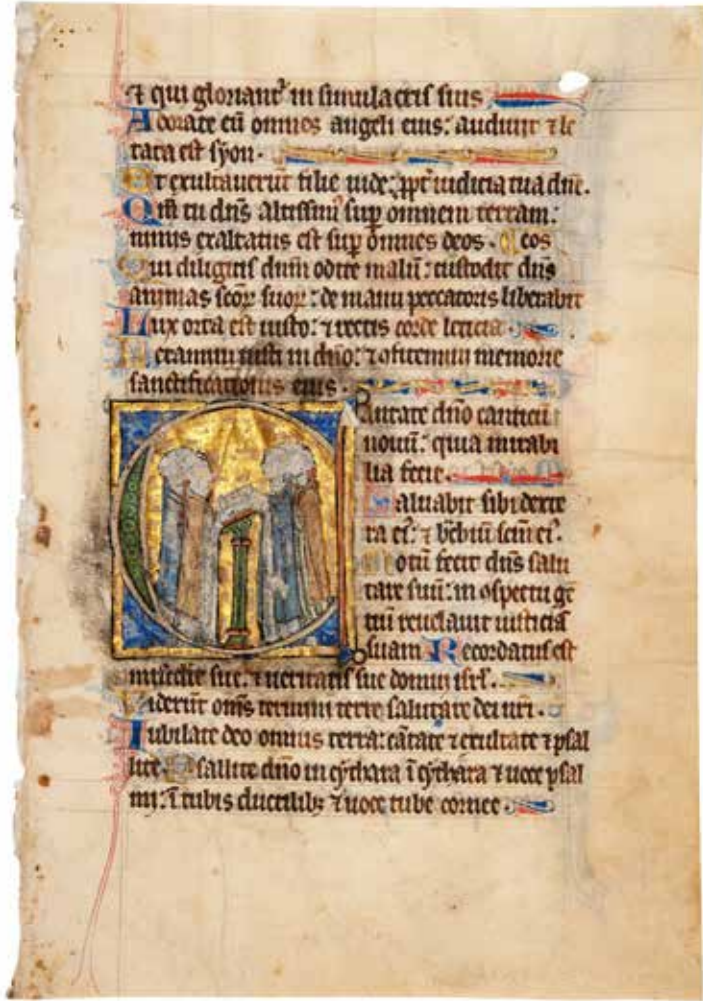 ⁊ qui gloriant᷑ in simulacris suis
Adorate eū omnes angeli eius: audiuit ⁊ le
tata est syon.
Et exultauerūt filie iude: ꝓpt᷑ iudicia tua dn̄e.
Qm̄ tu dn̄s altissim᷒ sup̄ omnem terram:
nimis exaltatus est sup̄ omnes deos. eos
Qui diligitis dn̄m odite malū: custodit dn̄s
animas scōꝝ suoꝝ: de manu peccatoris liberabit
Lux orta est iusto: ⁊ rectis corde leticia.
Letamini iusti in dn̄o: ⁊ ꝯfitemini memorie
sanctificationis eius.
Cantate dn̄o canticū
nouū: quia mirabi
lia fecit.
Saluabit sibi dexte
ra ei᷒: ⁊ bᷓchiū scm̄ ei᷒.
Notū fecit dn̄s salu
tare suū: in ꝯspectu gē
tiū reuelauit iusticiā
suam Recordatus est
mīe sue: ⁊ ueritatis sue domui isrl̄.
Viderūt om̄s termini terre salutare dei nr̄i.
Iubilate deo omnis terra: cātate ⁊ exultate ⁊ psal
lite Psallite dn̄o in cythara ī cythara ⁊ uoce psal
mi: ī tubis ductilibꝫ ⁊ uoce tube cornee.